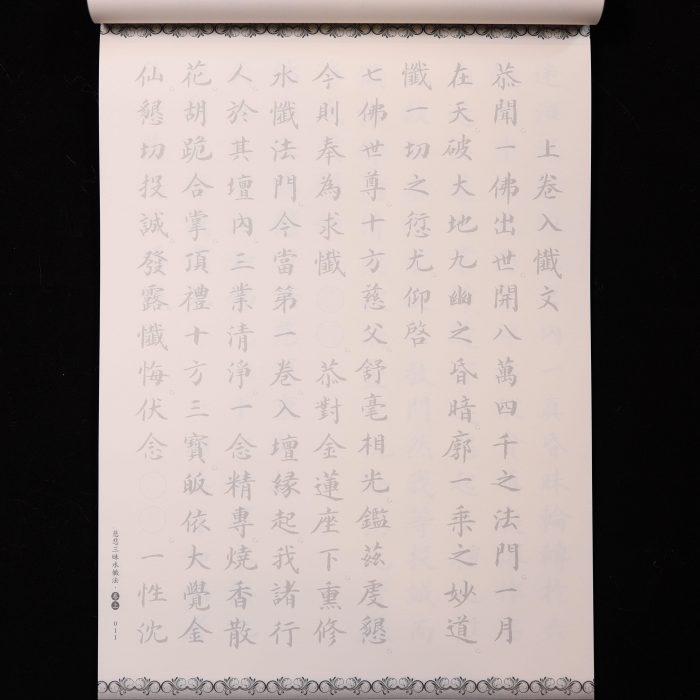 上卷入懺文
恭聞一佛出世開八萬四千之法門一月
在天破大地九幽之昏暗廓一乘之妙道
懺一切之愆尤仰啓
七佛世尊十方慈父舒毫相光鑑茲虔懇
今則奉為求懺○○恭對金蓮座下熏修
水懺法門今當第一卷入壇緣起我諸行
人於其壇內三業清淨一念精專燒香散
花胡跪合掌頂禮十方三寶皈依大覺金
仙懇切投誠發露懺悔伏念○○一性沈
慈悲三昧水懺法·卷上 011